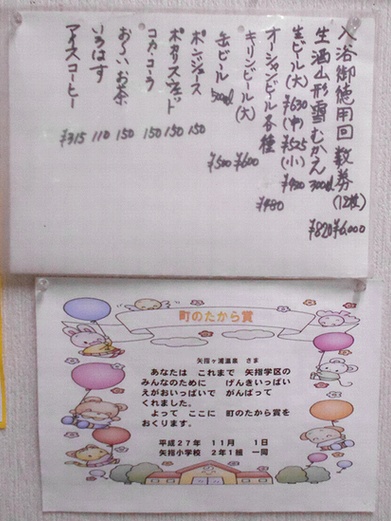 入浴御徳用回数券(12枚) ¥6,000
生酒山形雪むかえ 300ml ¥820
生ビール(大)¥630(中)¥525(小)¥420
オーシャンビール各種 ¥480
キリンビール(大) ¥600
缶ビール 500ml ¥500
ポンジュース 150
ポカリスエット 150
コカ・コーラ 150
お〜いお茶 150
いろはす 110
アイスコーヒー ¥315
町のたから賞
矢指ヶ浦温泉 さま
あなたは これまで 矢指学区の
みんなのために げんきいっぱい
えがおいっぱいで がんばって
くれました。
よって ここに 町のたから賞を
おくります。
平成27年 11月 1日
矢指小学校 2年1組 一同